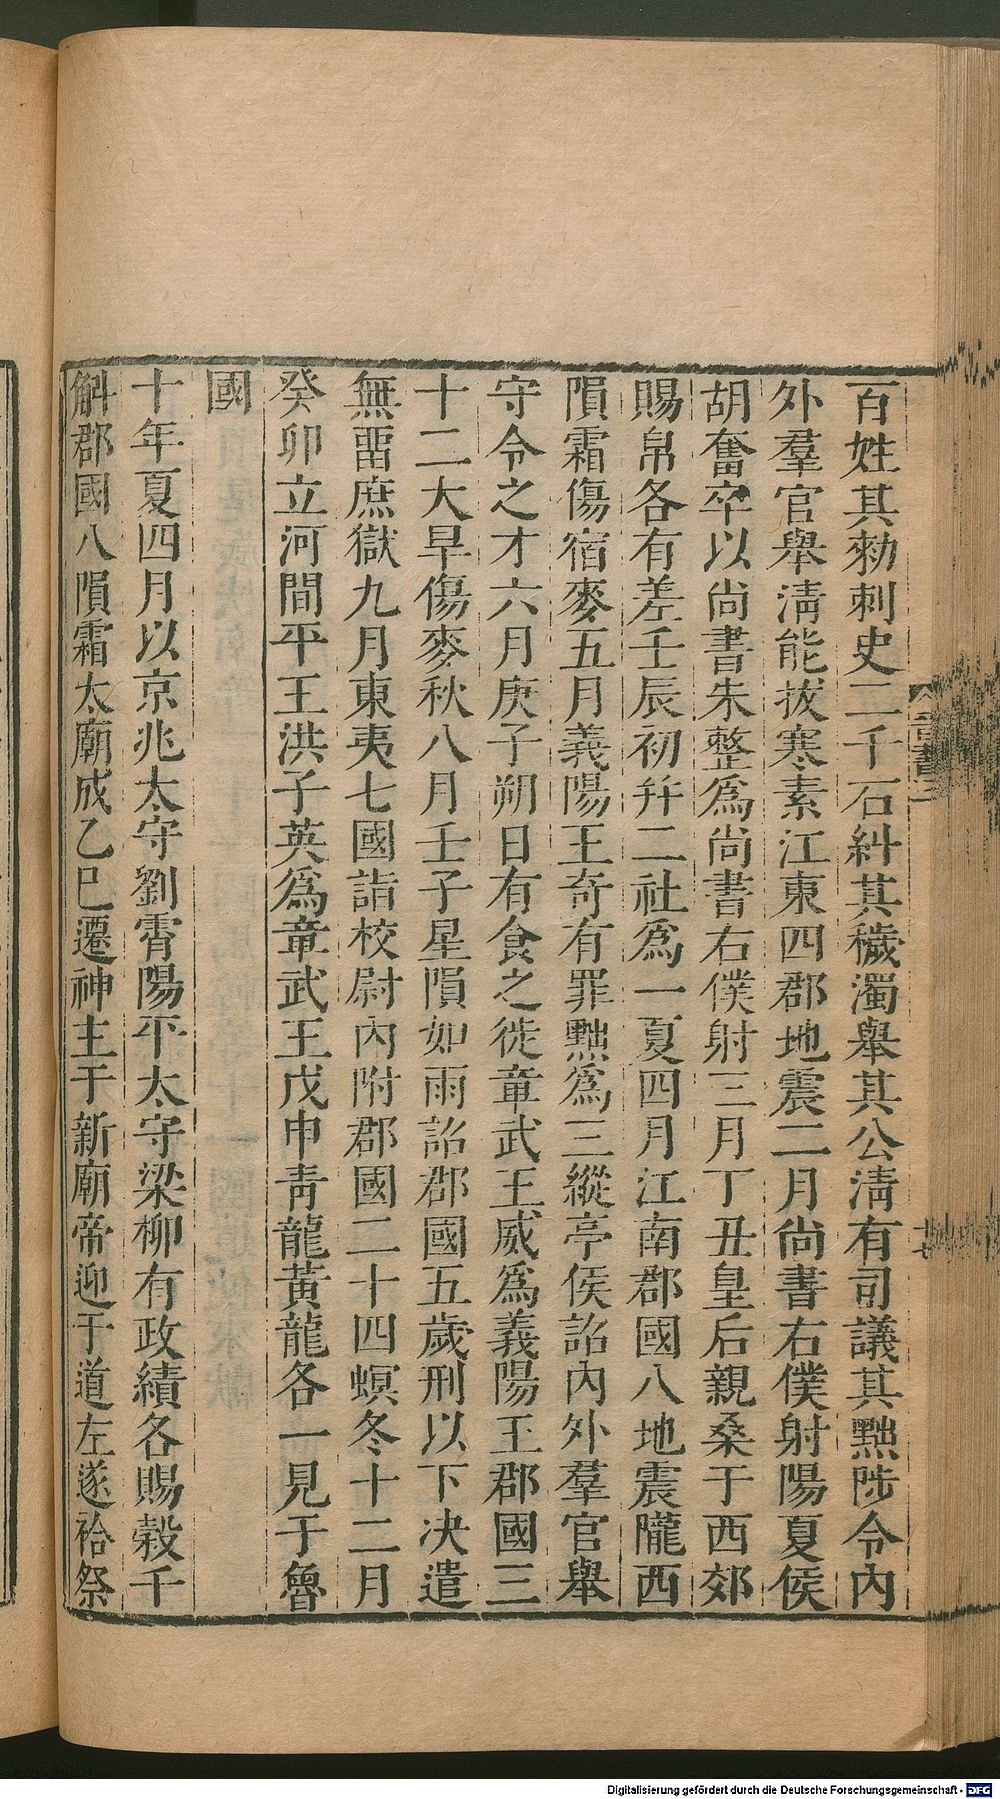 百姓其勑刺史二千石糾其穢濁舉其公淸有司議其黜陟令內
外羣官舉淸能拔寒素江東四郡地震二月尚書右僕射陽夏侯
胡奮卒以尚書朱整爲尚書右僕射三月丁丑皇后親桑于西郊
賜帛各有差壬辰初幷二社爲一夏四月江南郡國八地震隴西
隕霜傷宿麥五月義陽王奇有罪黜爲三縱亭侯詔內外羣官舉
守令之才六月庚子朔日有食之徙章武王威爲義陽王郡國三
十二大旱傷麥秋八月壬子星隕如雨詔郡國五歲刑以下決遣
無留庶獄九月東夷七國詣校尉內附郡國二十四螟冬十二月
癸卯立河間平王洪子英爲章武王戊申靑龍黃龍各一見于魯
國
十年夏四月以京兆太守劉霄陽平太守梁柳有政績各賜穀千
斛郡國八隕霜太廟成乙巳遷神主于新廟帝迎于道左遂祫祭
晉書三
十七
Digitalisierung gefördert durch die Deutsche Forschungsgemeinschaft - DFG